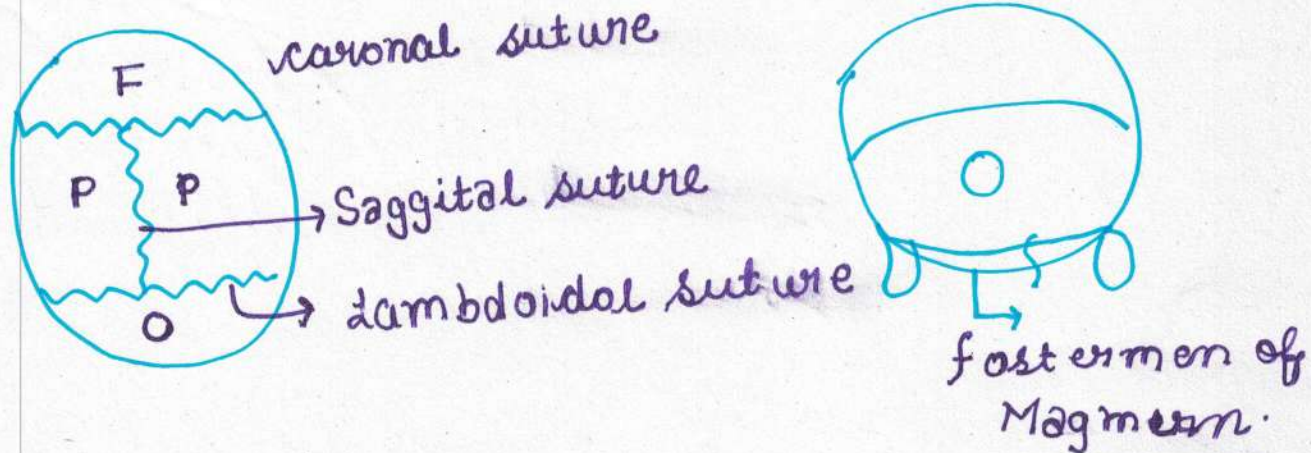 caronal suture
F
P P
Saggital suture
Lambdoidal suture
O
fostermen of
Magmern.